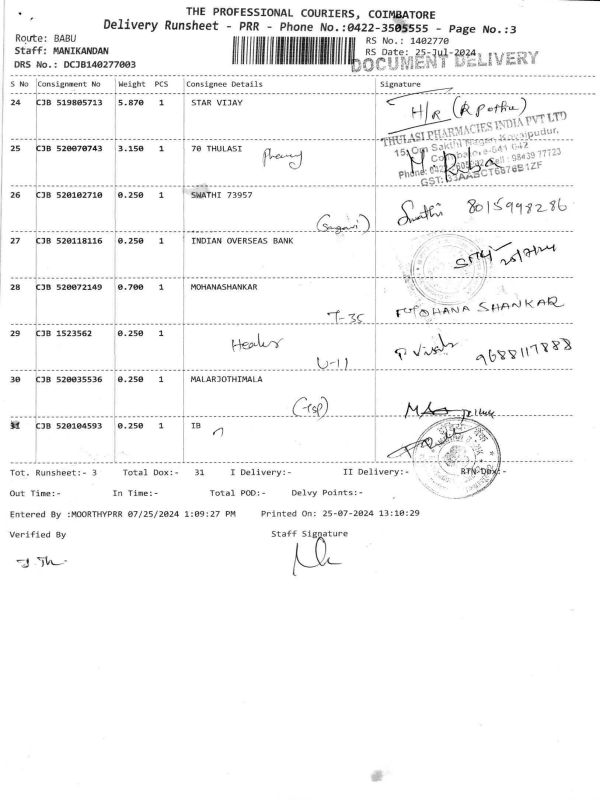 THE PROFESSIONAL COURIERS, COIMBATORE
Delivery Runsheet - PRR - Phone No.:0422-3505555 - Page No.:3
Route: BABU
RS No.: 1402770
Staff: MANIKANDAN
RS Date: 25-Jul-2024
DRS No.: DCJB140277003
DOCUMENT DELIVERY
S No Consignment No Weight PCS Consignee Details Signature
24 CJB 519805713 5.870 1 STAR VIJAY
H/R
THULASI PHARMACIES INDIA PVT LTD
25 CJB 520070743 3.150 1 70 THULASI
26 CJB 520102710 0.250 1 SWATHI 73957
Swathi 8015998286
27 CJB 520118116 0.250 1 INDIAN OVERSEAS BANK
28 CJB 520072149 0.700 1 MOHANASHANKAR
T-35 MOHANA SHANKAR
29 CJB 1523562 0.250 1
U-11 9688117888
30 CJB 520035536 0.250 1 MALARJOTHIMALA
31 CJB 520104593 0.250 1 IB
Tot. Runsheet:- 3 Total Dox:- 31 I Delivery:- II Delivery:- RTN Dox:-
Out Time:- In Time:- Total POD:- Delvy Points:-
Entered By :MOORTHYPRR 07/25/2024 1:09:27 PM Printed On: 25-07-2024 13:10:29
Verified By Staff Signature